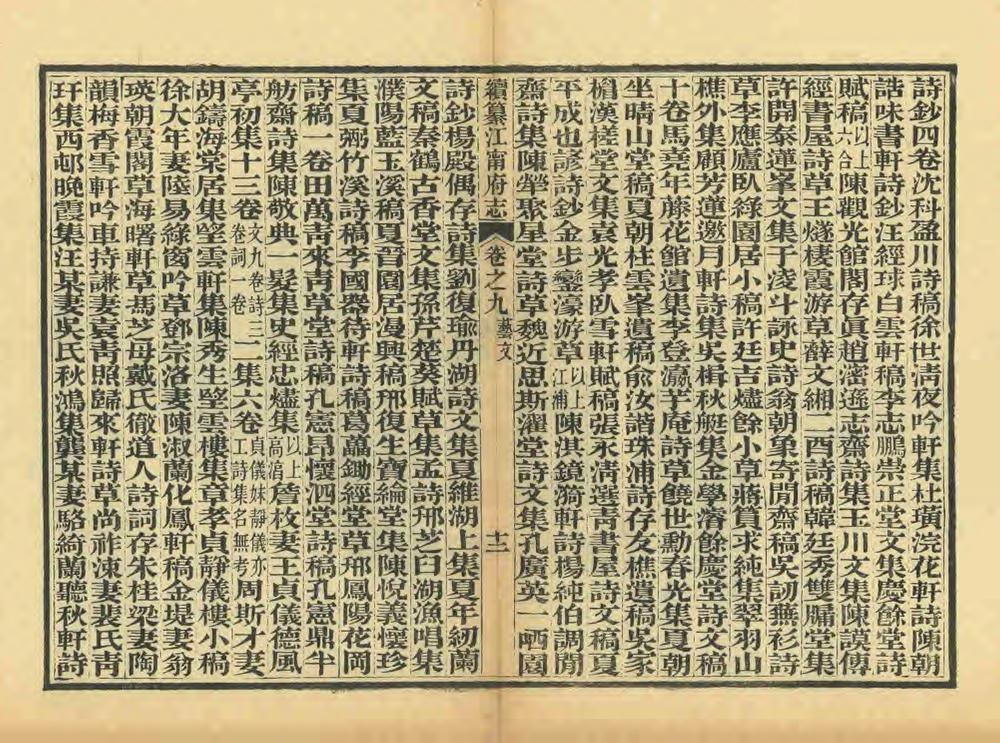 詩鈔四卷沈科盈川詩稿徐世淸夜吟軒集杜璜浣花軒詩陳朝
誥味書軒詩鈔汪經球白雲軒稿李志鵬崇正堂文集慶餘堂詩
賦稿以上六合陳觀光館閣存眞趙濬遜志齋詩集玉川文集陳謨傳
經書屋詩草王燧棲霞游草薛文緗二酉詩稿韓廷秀雙牖堂集
許開泰蓮峯文集于凌斗詠史詩翁朝象寄閒齋稿吳訒蕪衫詩
草李應廬臥綠園居小稿許廷吉燼餘小草蔣賞求純集翠羽山
樵外集顧芳蓮邀月軒詩集吳楫秋艇集金學濬餘慶堂詩文稿
十卷馬堯年藤花館遺集李登瀛芋庵詩草饒世勳春光集夏朝
坐晴山堂稿夏朝柱雲峯遺稿俞汝諧珠浦詩存友樵遺稿吳家
楣漢槎堂文集袁光孝臥雪軒賦稿張永淸選靑書屋詩文稿夏
平成也諺詩鈔金步鑾濠游草以上江浦陳淇鏡漪軒詩楊純伯調閒
齋詩集陳犖聚星堂詩草魏近思斯濯堂詩文集孔廣英一哂園
續纂江甯府志 卷之九 藝文 十二
詩鈔楊殿偶存詩集劉復瑜丹湖詩文集夏維湖上集夏年紉蘭
文稿秦鶴古香堂文集孫芹楚葵賦草集孟詩邢芝臼湖漁唱集
濮陽藍玉溪稿夏晋園居漫興稿邢復生寶綸堂集陳悅義懷珍
集夏弼竹溪詩稿李國器待軒詩稿葛藟鋤經堂草邢鳳陽花岡
詩稿一卷田萬靑來靑草堂詩稿孔憲昂懷泗堂詩稿孔憲鼎半
舫齋詩集陳敬典一髮集史經忠燼集以上高淳詹枚妻王貞儀德風
亭初集十三卷文九卷詩三卷詞一卷二集六卷貞儀妹靜儀亦工詩集名無考周斯才妻
胡鑄海棠居集㘸雲軒集陳秀生㘸雲樓集章孝貞靜儀樓小稿
徐大年妻陸易綠窗吟草鄧宗洛妻陳淑蘭化鳳軒稿金堤妻翁
瑛朝霞閣草海曙軒草馮芝母戴氏徹道人詩詞存朱桂梁妻陶
韻梅香雪軒吟車持謙妻袁靑照歸來軒詩草尚祚涷妻裴氏靑
玕集西邨晚霞集汪某妻吳氏秋鴻集龔某妻駱綺蘭聽秋軒詩